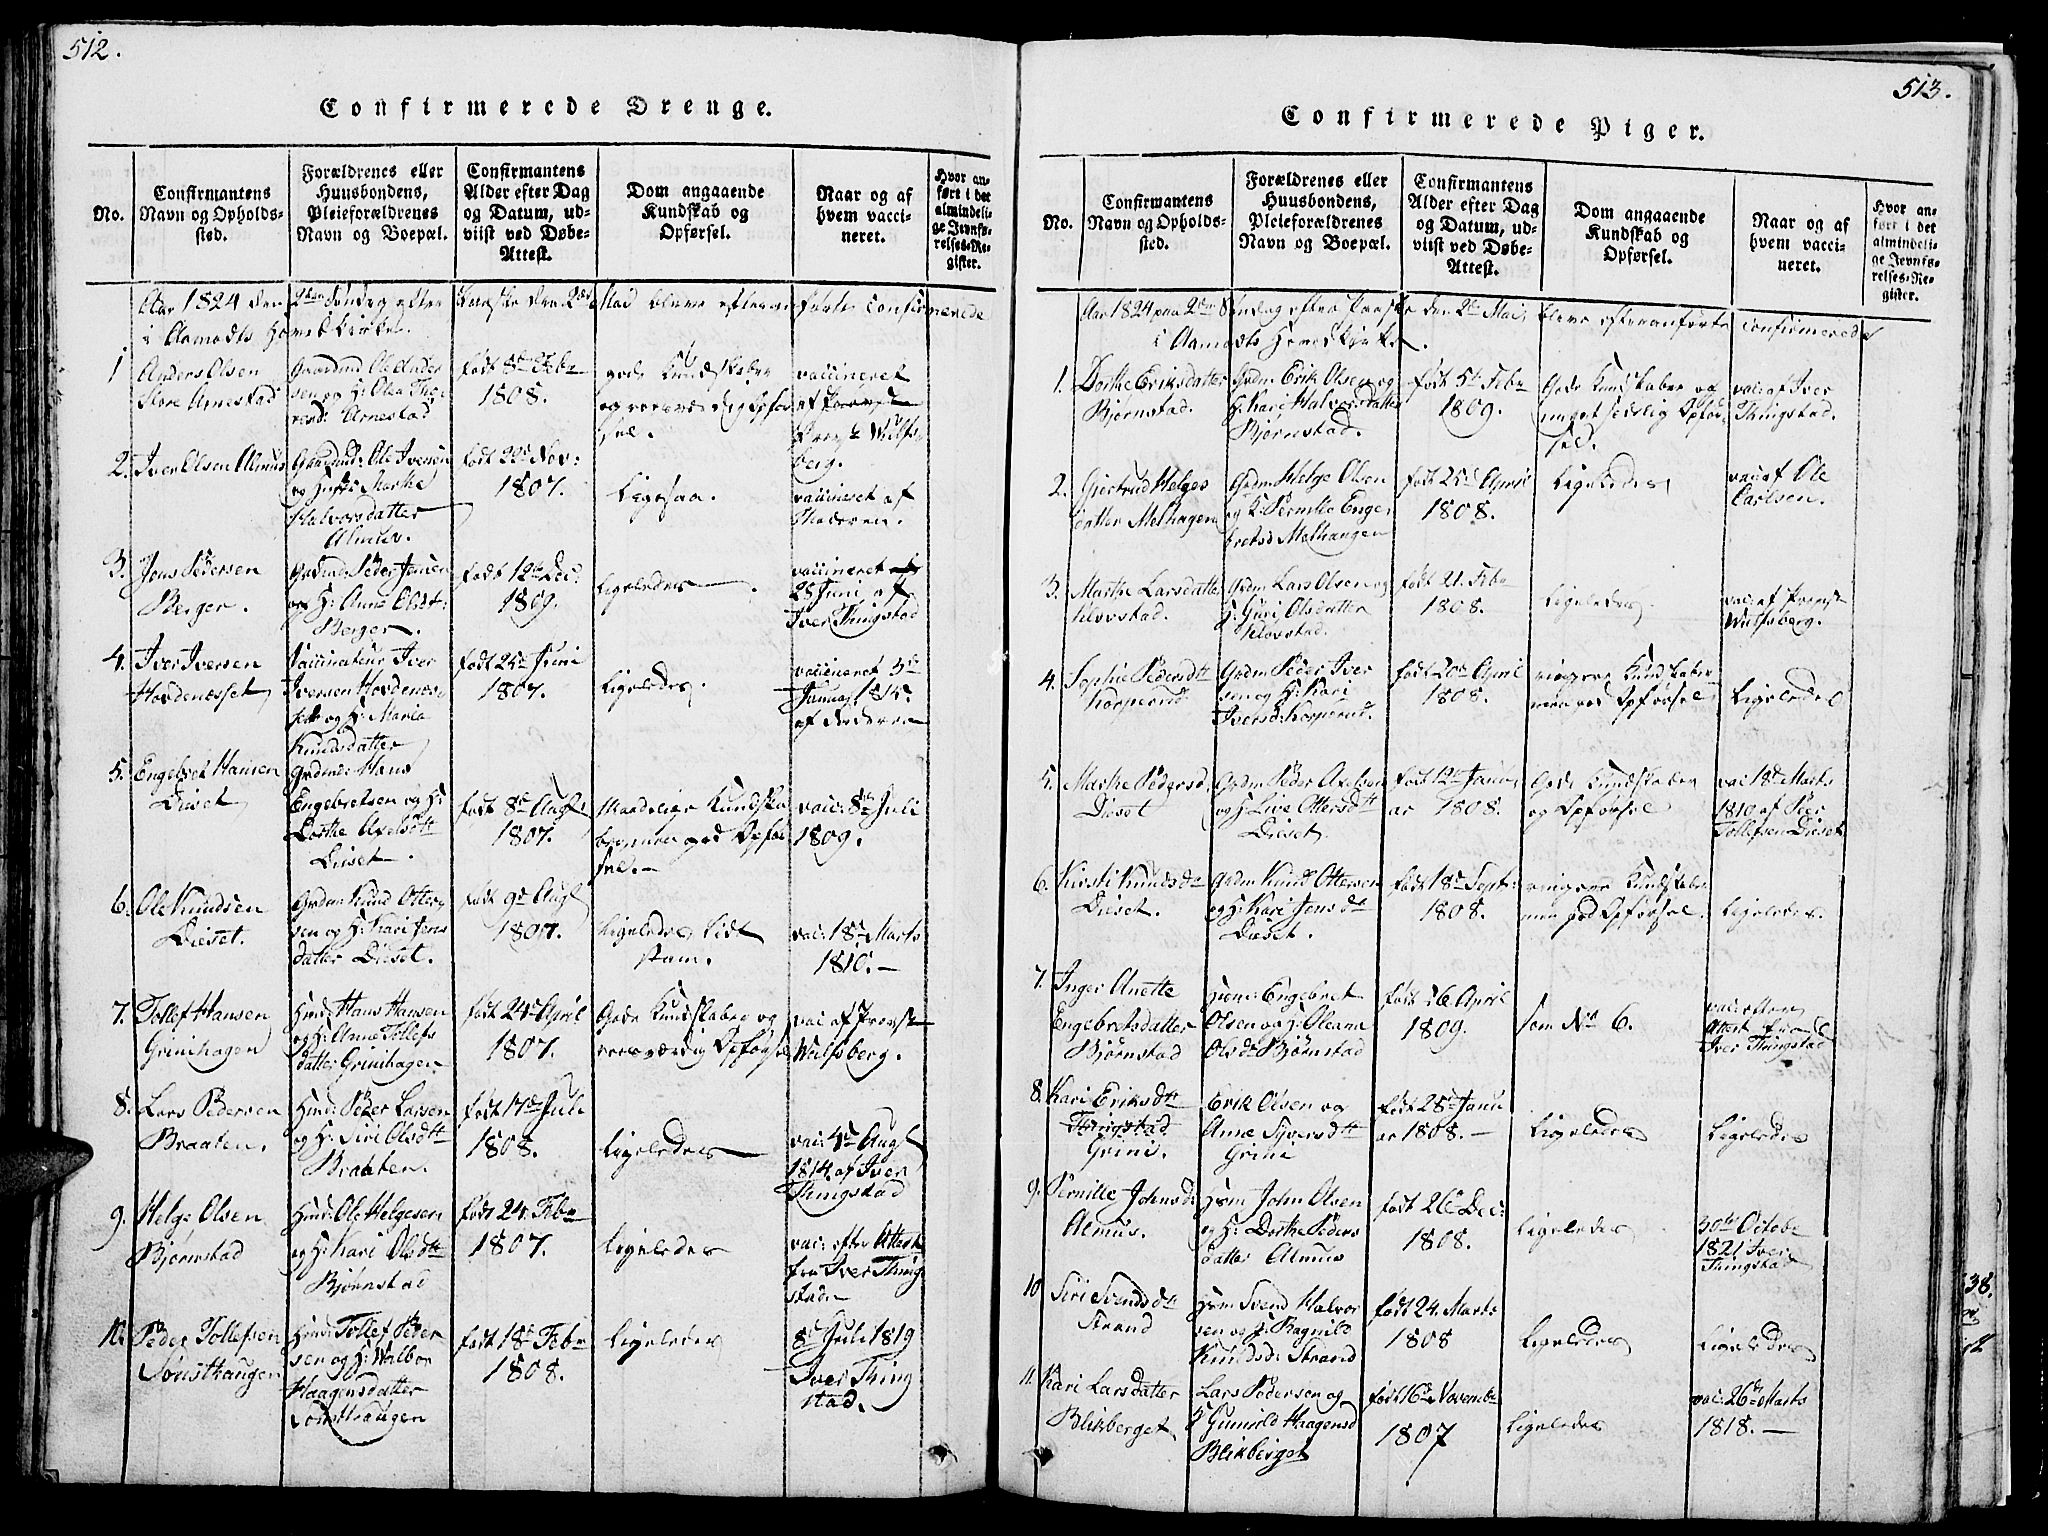 512.
Confirmerede Drenge.
No.
Confirmantens
Navn og Opholds-
sted.
Forældrenes eller
Huusbondens,
Pleieforældrenes
Navn og Boepæl.
Confirmantens
Alder efter Dag
og Datum, ud-
viist ved Døbe-
Attest.
Dom angaaende
Kundskab og
Opførsel.
Naar og af
hvem vacci-
neret.
Hvor an-
ført i det
almindeli-
ge Jevnfø-
relses-Re-
gister.
Aar 1824 den 2den Søndag efter Paaske den 2de Maii bleve efteranførte confirmerede
i Aamodts Hovedkirke.
1
Anders Olsen
Store Arnestad
Ole Ander
sen og H:
Arnestad
født 8de Febr
1808.
gode Kundskaber
og
vaccineret
af
Wulfs-
berg.
2.
Iver Olsen Alme
Ole Iversen
og Marthe
Halvorsdatter
født 22de Nov:
1807.
Ligesaa.
vaccineret af
Moderen.
3.
Jens Pedersen
Berger.
Peder Jensen
og H: Anne
Berger.
født 12te Dec:
1809.
Ligeledes.
vaccineret
28 Juni af
Iver Thingstad
4.
Iver Iversen
Hovdenæsset
Vaccinateur Iver
Iversen Hovdenæs-
set og H: Maria
Knudsdatter
født 25de Juni
1807.
Ligeledes.
vaccineret
5.
Engebret Hansen
Diset
Grdmd: Hans
Engebretsen og H:
Dorthe Axelsdtt
Diset.
født 8de Augt
1807.
Maadelige Kundska
ber men god Opfør
sel.
vacc: 8de Juli
1809.
6.
Ole Knudsen
Diset.
Grdm: Knud Otter-
sen og H: Kari Jens
datter Diset.
født 9de Augt
1807.
Ligeledes lidt
vac: 18de Marts
1810.
7.
Tollef Hansen
Grinihagen
Hmd: Hans Hansen
og H: Anne Tollefs
datter Grinihagen
født 24de April
1807.
Gode Kundskaber og
Opførsel
vac af Provst
Wulfsberg.
8.
Lars Pedersen
Braaten.
Hmd: Peder Larsen
og H: Siri Olsdtt
Braaten.
født 17de Juli
1808.
Ligeledes
vac: 4de Augt
1814 af Iver
Thingstad
9.
Helge Olsen
Bjørnstad
Hmd: Ole Helgesen
og H: Kari Olsdtt
Bjørnstad
født 24. Febr
1807.
Ligeledes
vac: efter Attest
fra Iver Thing
stad
10.
Peder Tollefsen
Hmd: Tollef Peder
sen og H: Walbor
Haagensdatter
født 18de Febr
1808.
Ligeledes
8de Juli 1819
Iver Thing
stad.
513.
Confirmerede Piger.
No.
Confirmantens
Navn og Opholds-
sted.
Forældrenes eller
Huusbondens,
Pleieforældrenes
Navn og Boepæl.
Confirmantens
Alder efter Dag
og Datum, ud-
viist ved Døbe-
Attest.
Dom angaaende
Kundskab og
Opførsel.
Naar og af
hvem vacci-
neret.
Hvor an-
ført i det
almindeli-
ge Jevnfø-
relses-Re-
gister.
Aar 1824 paa 2den Søndag efter Paaske den 2de Mai, bleve efteranførte confirmerede
i Aamodts Hovedkirke.
1.
Dorthe Eriksdatter
Bjørnstad.
Grdm Erik Olsen og
H: Kari Halvorsdatter
Bjørnstad.
født 5te Febr
1809.
Gode Kundskaber og
meget sædelig Opfør-
sel.
vac: af Iver
Thingstad.
2.
Giertrud Helges
datter Melhagen
Grdm Helge Olsen
og K: Pernille Enge
bretsd Melhaugen
født 25de April
1808.
Ligeledes
vac: af Ole
Carlsen.
3.
Marthe Larsdatter
Klovstad.
Grdm Lars Olsen og
H: Guri Olsdatter
Klovstad.
født 21. Febr
1808.
Ligeledes.
vac: af Provst
Wulfsberg.
4.
Sophie Pedersdtt
Korperud.
Grdm Peder Iver
sen og H: Kari
Iversd: Korperud.
født 20de April
1808.
ringere Kundskaber
men god Opførsel
Ligeledes
5.
Marthe Pedersd.
Diset
Grdm Peder Axelsen
og H: Live Ottersdtt
Diset.
født 12te Janu
ar 1808.
Gode Kundskaber
og Opførsel
vac: 18de Marts
1810 af Peer
Tollefsen Diset
6.
Kirsti Knudsdr
Diset.
Grdm Knud Ottersen
og H: Kari Jensdr
Diset.
født 18de Sept:
1808.
ringere Kundskaber
men god Opførsel.
Ligeledes.
7.
Inger Anette
Engebretsdatter
Bjørnstad
Hsm: Engebret
Olsen og H: Oleana
Olsdr Bjørnstad
født 26 April
1809.
som No 6.
vac: efter
Attest fra
Iver Thingstad
8.
Kari Eriksdtt
Thingstad
Grini.
Erik Olsen og
Anne Syversdtt
Grini
født 25de Janu
ar 1808.
Ligeledes
Ligeledes
9.
Pernille Johnsd:
Almus.
Hsm John Olsen
og H: Dorthe Peders
datter Almus
født 26de Dec:
1808.
Ligeledes
30te Octobr
1821 Iver
Thingstad
10
Siri Svendsdtt
Strand
Hsm Svend Halvor
sen og H: Ragnild
Knudsd: Strand
født 24. Marts
1808
Ligeledes
Ligeledes
11.
Kari Larsdatter
Blikberget
Lars Pedersen og
H Gunild Haagensd
Blikberget
født 16de Novembr
1807
Ligeledes
vac: 26de Marts
1818.
38.